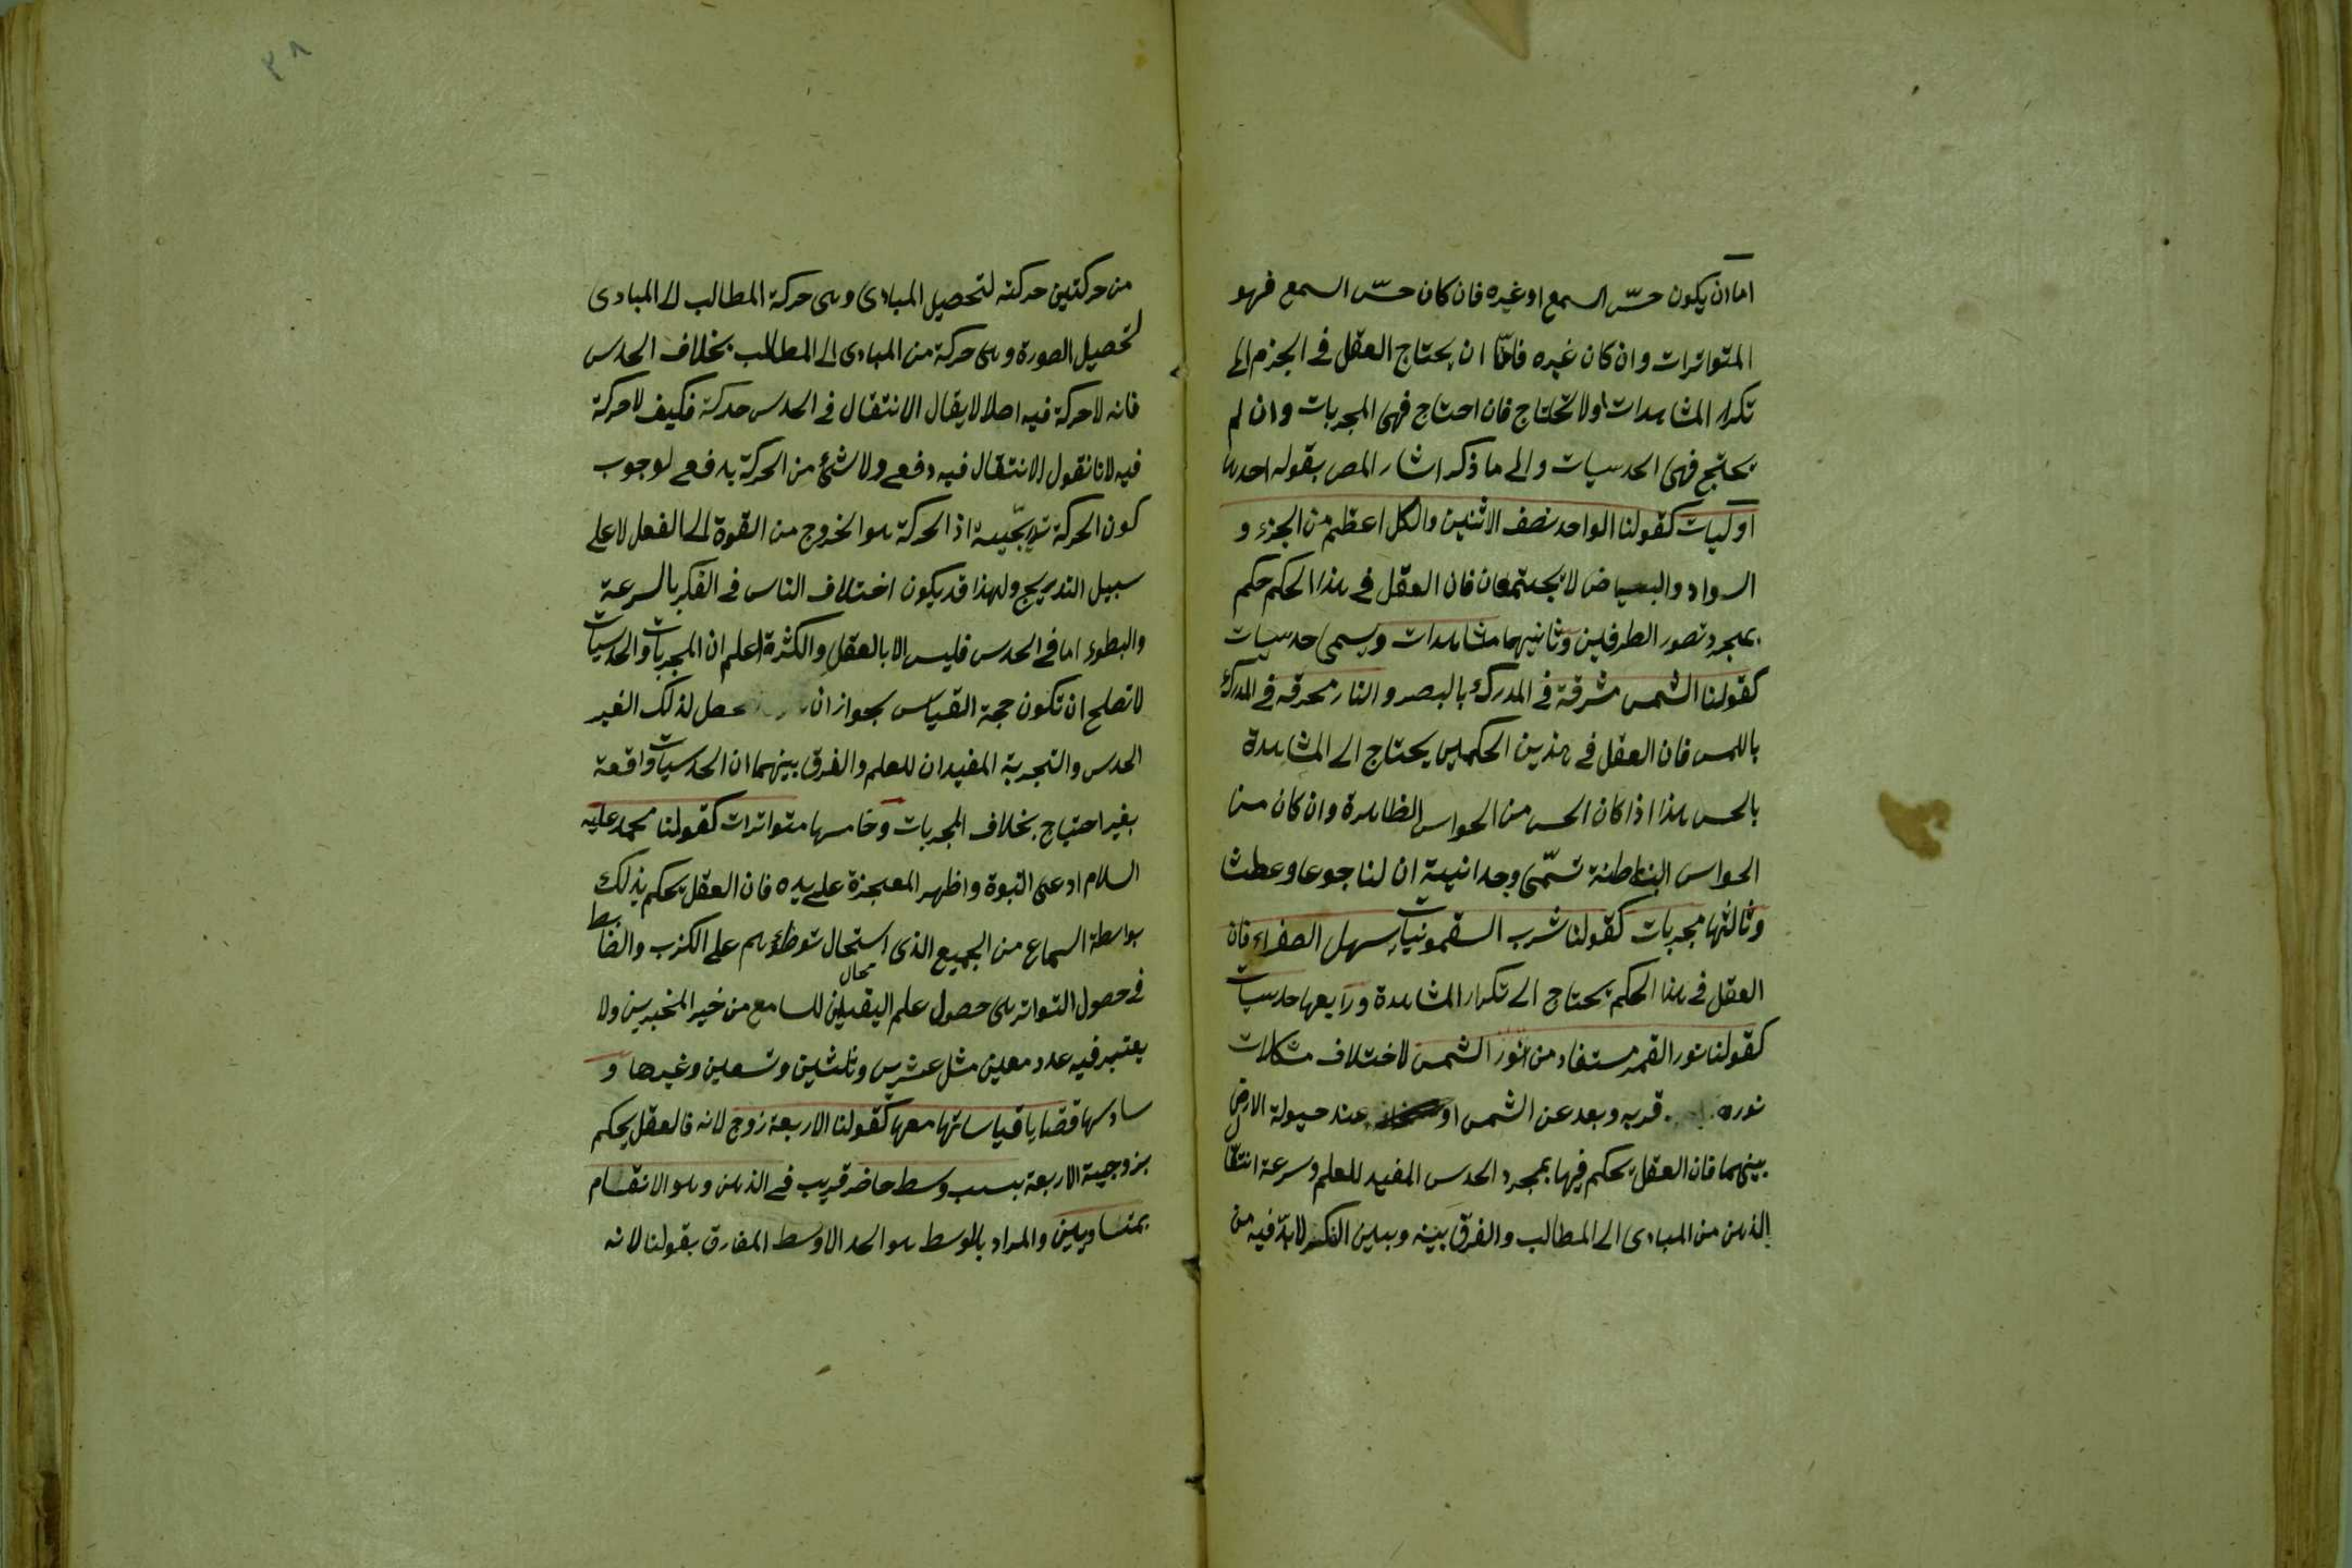 اما ان يكون حسّ السمع او غيره فان كان حسّ السمع فهو
المتواترات وان كان غيره فامّا ان يحتاج العقل فى الجزم الى
تكرار المشاهدات او لا تحتاج فان احتاج فهى المجربات وان لم
يحتج فهى الحدسيات والى ما ذكر اشار المص بقوله احدها
اوليات كقولنا الواحد نصف الاثنين والكل اعظم من الجزء و
السواد والبياض لا يجتمعان فان العقل فى هذا الحكم حكم
بمجرد تصور الطرفين وثانيهما مشاهدات ويسمى حدسيات
كقولنا الشمس مشرقة فى المدرك بالبصر والنار محرقة فى المدرك
باللمس فان العقل فى هذين الحكمين يحتاج الى المشاهدة
بالحس هذا اذا كان الحس من الحواس الظاهرة وان كان من
الحواس الباطنة تسمّى وجدانية ان لنا جوعا وعطشا
وثالثها مجربات كقولنا شرب السقمونيا يسهل الصفراء فان
العقل فى هذا الحكم يحتاج الى تكرار المشاهدة ورابعها حدسيات
كقولنا نور القمر مستفاد من نور الشمس لاختلاف مشكلات
نوره قربه وبعد عن الشمس او عند حيولة الارض
بينهما فان العقل يحكم فيها بمجرد الحدس المفيد للعلم وسرعة انتقا
الذهن من المبادى الى المطالب والفرق بينه وبين الفكر لا بدّ فيه من
من حركتين حركته لتحصيل المبادى وهى حركة المطالب الى المبادى
لتحصيل الصورة وهى حركة من المبادى الى المطالب بخلاف الحدس
فانه لا حركة فيه اصلا لا يقال الانتقال فى الحدس حركة فكيف لا حركة
فيه لانا نقول الانتقال فيه دفعى ولا شئ من الحركة بدفعى لوجوب
كون الحركة تدريجّية اذ الحركة هو الخروج من القوة الى الفعل لا على
سبيل التدريج ولهذا قد يكون اختلاف الناس فى الفكر بالسرعة
والبطوء اما فى الحدس فليس الا بالعقل والكثرة اعلم ان المجربات والحدسيات
لا تصلح ان تكون حجة القياس بجواز ان يحصل لذلك الغير
الحدس والتجربة المفيدان للعلم والفرق بينهما ان الحدسيات واقعة
بغير احتياج بخلاف المجربات وخامسها متواترات كقولنا محمد عليه
السلام ادعى النبوة واظهر المعجزة على يده فان العقل يحكم بذلك
بواسطة السماع من الجميع الذى استحال توطؤهم على الكذب والضابط
فى حصول التواتر هى حصول علم اليقين للسامع من خبر المخبرين ولا
يعتبر فيه عدد معين مثل عشرين وثلثين وتسعين وغيرها و
سادسها قضايا قياساتها معها كقولنا الاربعة زوج لانه فالعقل يحكم
بزوجية الاربعة بسبب وسط حاضر قريب فى الذهن وهو الانقسام
بمتساويين والمراد بالوسط هو الحد الاوسط المفارق بقولنا لانه